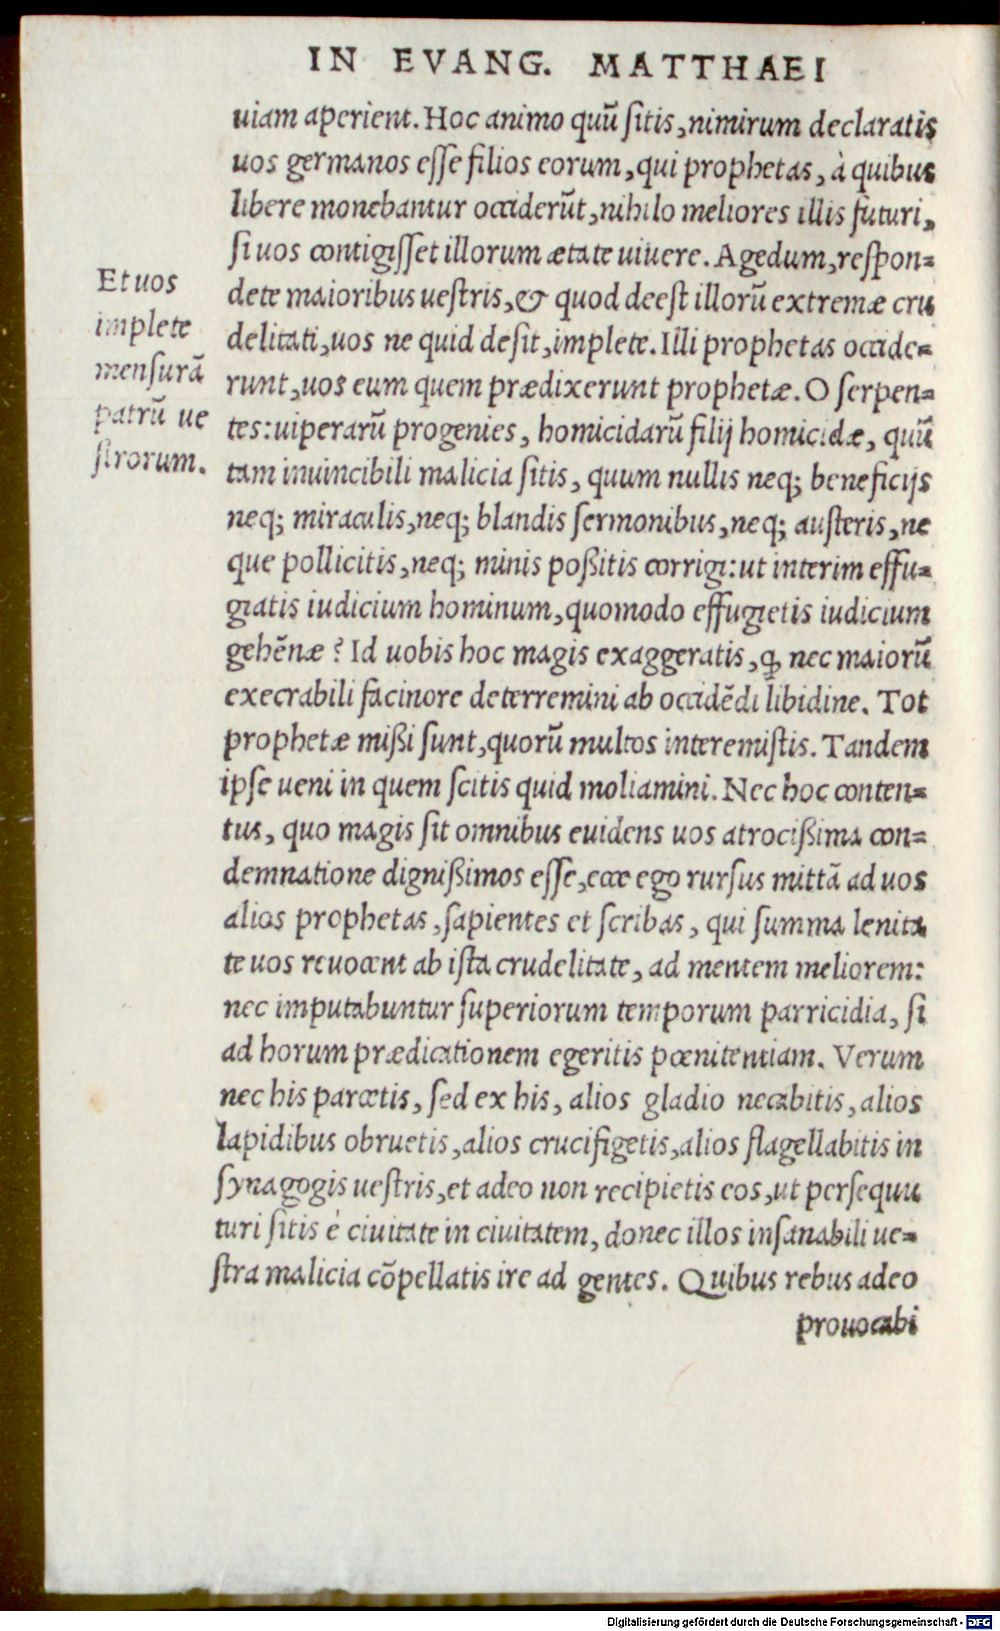 IN EVANG. MATTHAEI
uiam aperient. Hoc animo quū ſitis, nimirum declaratis
uos germanos eſſe filios eorum, qui prophetas, à quibus
libere monebantur occiderūt, nihilo meliores illis futuri,
ſi uos contigiſſet illorum ætate uiuere. Agedum, reſpon=
dete maioribus ueſtris, & quod deeſt illorū extremæ cru
delitati, uos ne quid deſit, implete. Illi prophetas occide=
runt, uos eum quem prædixerunt prophetæ. O ſerpen=
tes: uiperarū progenies, homicidarū filij homicidæ, quū
tam inuincibili malicia ſitis, quum nullis neq; beneficijs
neq; miraculis, neq; blandis ſermonibus, neq; auſteris, ne
que pollicitis, neq; minis poßitis corrigi: ut interim effu=
giatis iudicium hominum, quomodo effugietis iudicium
gehēnæ? Id uobis hoc magis exaggeratis, ꝙ nec maiorū
execrabili facinore deterremini ab occidēdi libidine. Tot
prophetæ mißi ſunt, quorū multos interemiſtis. Tandem
ipſe ueni in quem ſcitis quid moliamini. Nec hoc conten=
tus, quo magis ſit omnibus euidens uos atrocißima con=
demnatione dignißimos eſſe, ecce ego rurſus mittā ad uos
alios prophetas, ſapientes et ſcribas, qui ſumma lenita
te uos reuocent ab iſta crudelitate, ad mentem meliorem:
nec imputabuntur ſuperiorum temporum parricidia, ſi
ad horum prædicationem egeritis pœnitentiam. Verum
nec his parcetis, ſed ex his, alios gladio necabitis, alios
lapidibus obruetis, alios crucifigetis, alios flagellabitis in
ſynagogis ueſtris, et adeo non recipietis eos, ut perſequu
turi ſitis è ciuitate in ciuitatem, donec illos inſanabili ue=
ſtra malicia cōpellatis ire ad gentes. Quibus rebus adeo
prouocabi
Et uos
implete
menſurā
patrū ue
ſtrorum.
Digitalisierung gefördert durch die Deutsche Forschungsgemeinschaft - DFG